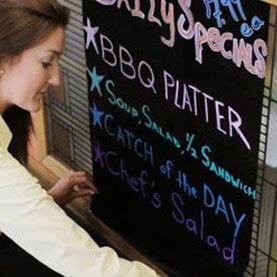 Daily Specials
BBQ PLATTER
SOUP, SALAD, ½ SANDWICH
CATCH OF THE DAY
Chef's SALAD